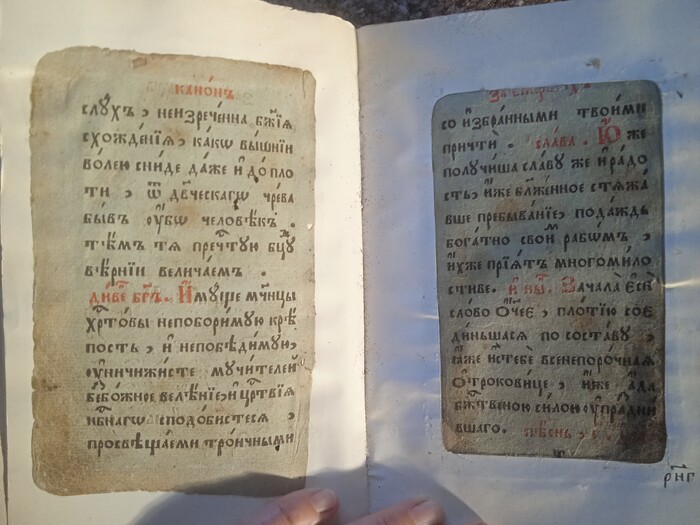 КАНО́НЪ
слꙋ́хъ, неизрече́нна бж҃їѧ
схожде́нїѧ, ка́кѡ вы́шнїи
во́лею сни́де да́же и҆ до пло́
ти, ѿ дв҃ческагѡ чре́ва
бы́въ ᲂу҆́бѡ человѣ́къ.
тѣ́мъ тѧ пречⷭ҇тꙋю бц҃ꙋ
вѣ́рнїи велича́емъ.
ди́венъ бг҃ъ. И҆мꙋ́ще мч҃нцы
хрⷭ҇то́вы непобори́мꙋю крѣ́
пость, и҆ непобѣди́мꙋю,
ᲂу҆ничижи́сте мꙋчи́телей
безбо́жное велѣ́нїе, и҆ црⷭ҇твїѧ
нбⷭ҇нагѡ сподо́бистесѧ,
просвѣща́еми трⷪ҇ичными
со и҆збра́нными твои́ми
причти́. сла́ва. Ю҆́же
полꙋчи́ша сла́вꙋ же и҆ ра́до
сть, и҆̀же бл҃же́нное стѧжа́
вше пребыва́нїе, пода́ждь
бога́тно свои́мъ рабѡ́мъ,
и҆̀хже прїѧ́тъ многоми́ло
стиве. и҆ нн҃ѣ. Зача́ла є҆сѝ
сло́во ѻ҆́ч҃ее, пло́тїю сое
ди́ньшасѧ по соста́вꙋ,
та́же и҆с тебѐ всенепоро́чнаѧ
Ѻ҆трокови́це, и҆́же а҆́да
бжⷭ҇твеною си́лою ᲂу҆праздни́
вшаго. пѣ́снь,
рнг